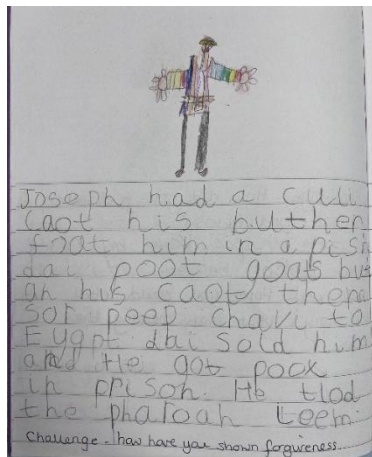 Joseph had a culi
caot his buther
froat him in a pish
dai poot goats
an his caot thena
sor peep chavl to
Eygpt dai sold him
and He got pock
in prison. He tlod
the pharoah Leem.
Challenge - how have you shown forgiveness